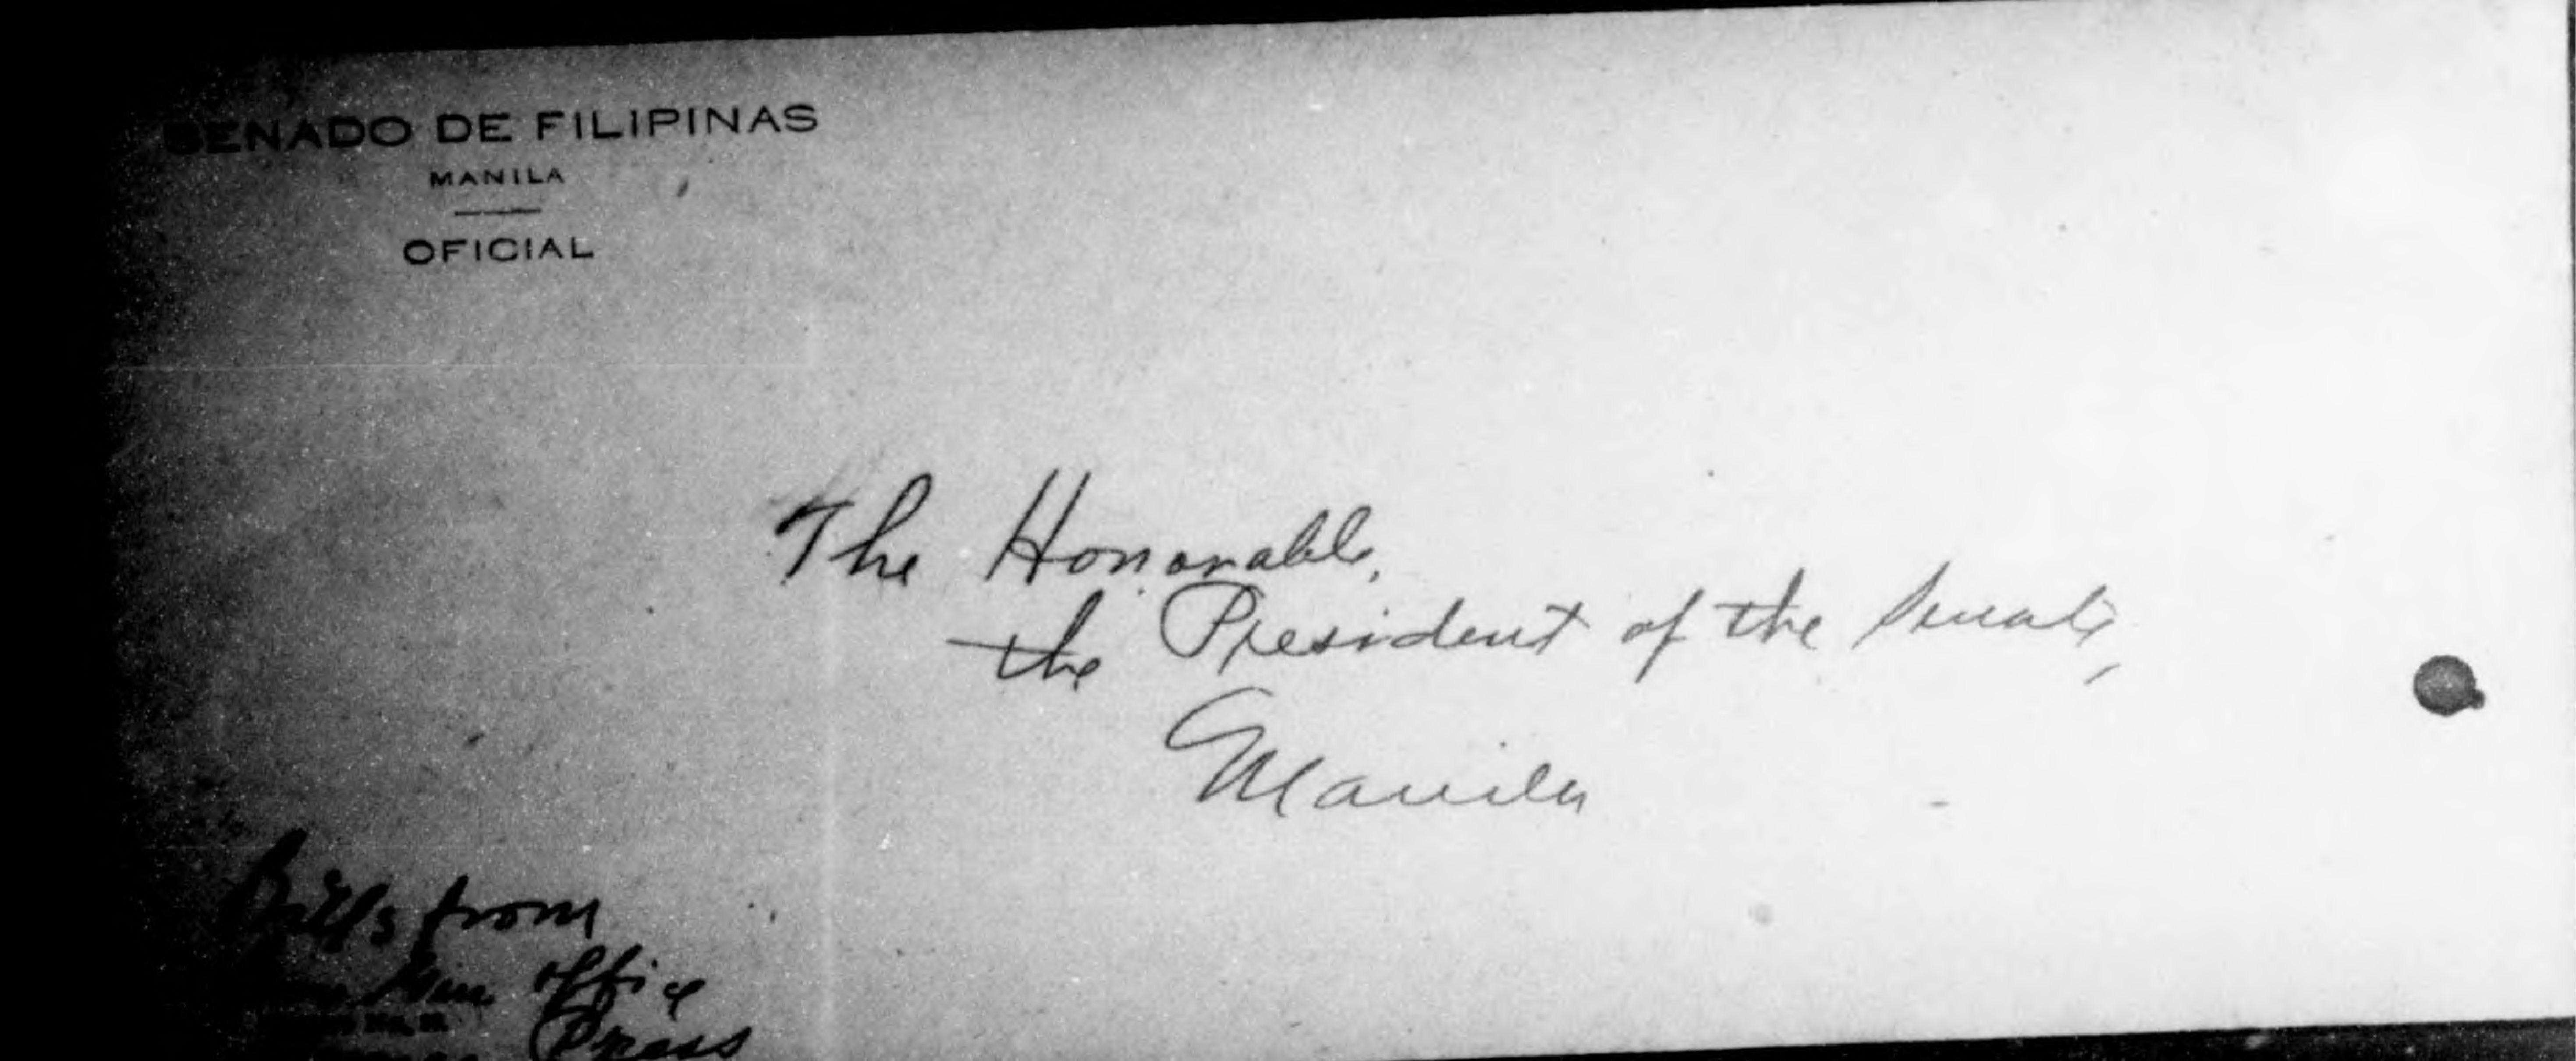 SENADO DE FILIPINAS
MANILA
OFICIAL
The Honorable,
the President of the Senate,
Manila
Bills from
Gen. office
Press